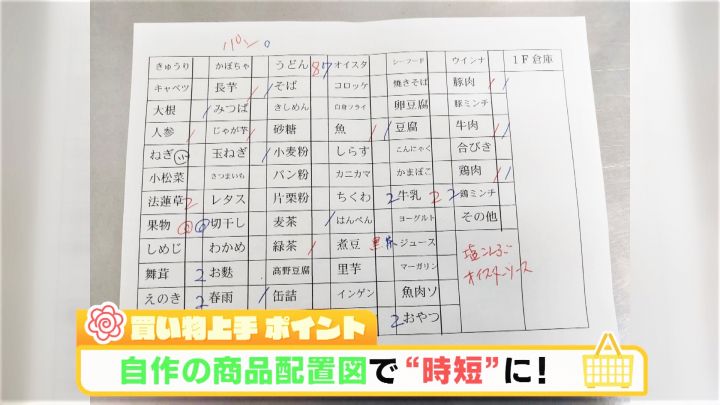 パン 0
きゅうり かぼちゃ うどん 87 オイスタ シーフード ウインナ 1F倉庫
キャベツ 長芋 / そば コロッケ 焼きそば 豚肉 / /
大根 / みつば きしめん 白身フライ 卵豆腐 豚ミンチ
人参 / じゃが芋 / 砂糖 魚 / / 豆腐 牛肉 / /
ねぎ 小 玉ねぎ / 小麦粉 しらす こんにゃく 合びき
小松菜 さつまいも パン粉 カニカマ かまぼこ 鶏肉 / /
法蓮草 2 レタス 片栗粉 ちくわ 2 牛乳 2 2 鶏ミンチ
果物 切干し 麦茶 / はんぺん ヨーグルト その他
しめじ わかめ 緑茶 / 煮豆 ジュース 塩こんぶ
舞茸 2 お麩 高野豆腐 里芋 マーガリン オイスターソース
えのき 2 春雨 / 缶詰 インゲン 魚肉ソ
2 おやつ
買い物上手 ポイント
自作の商品配置図で“時短”に!